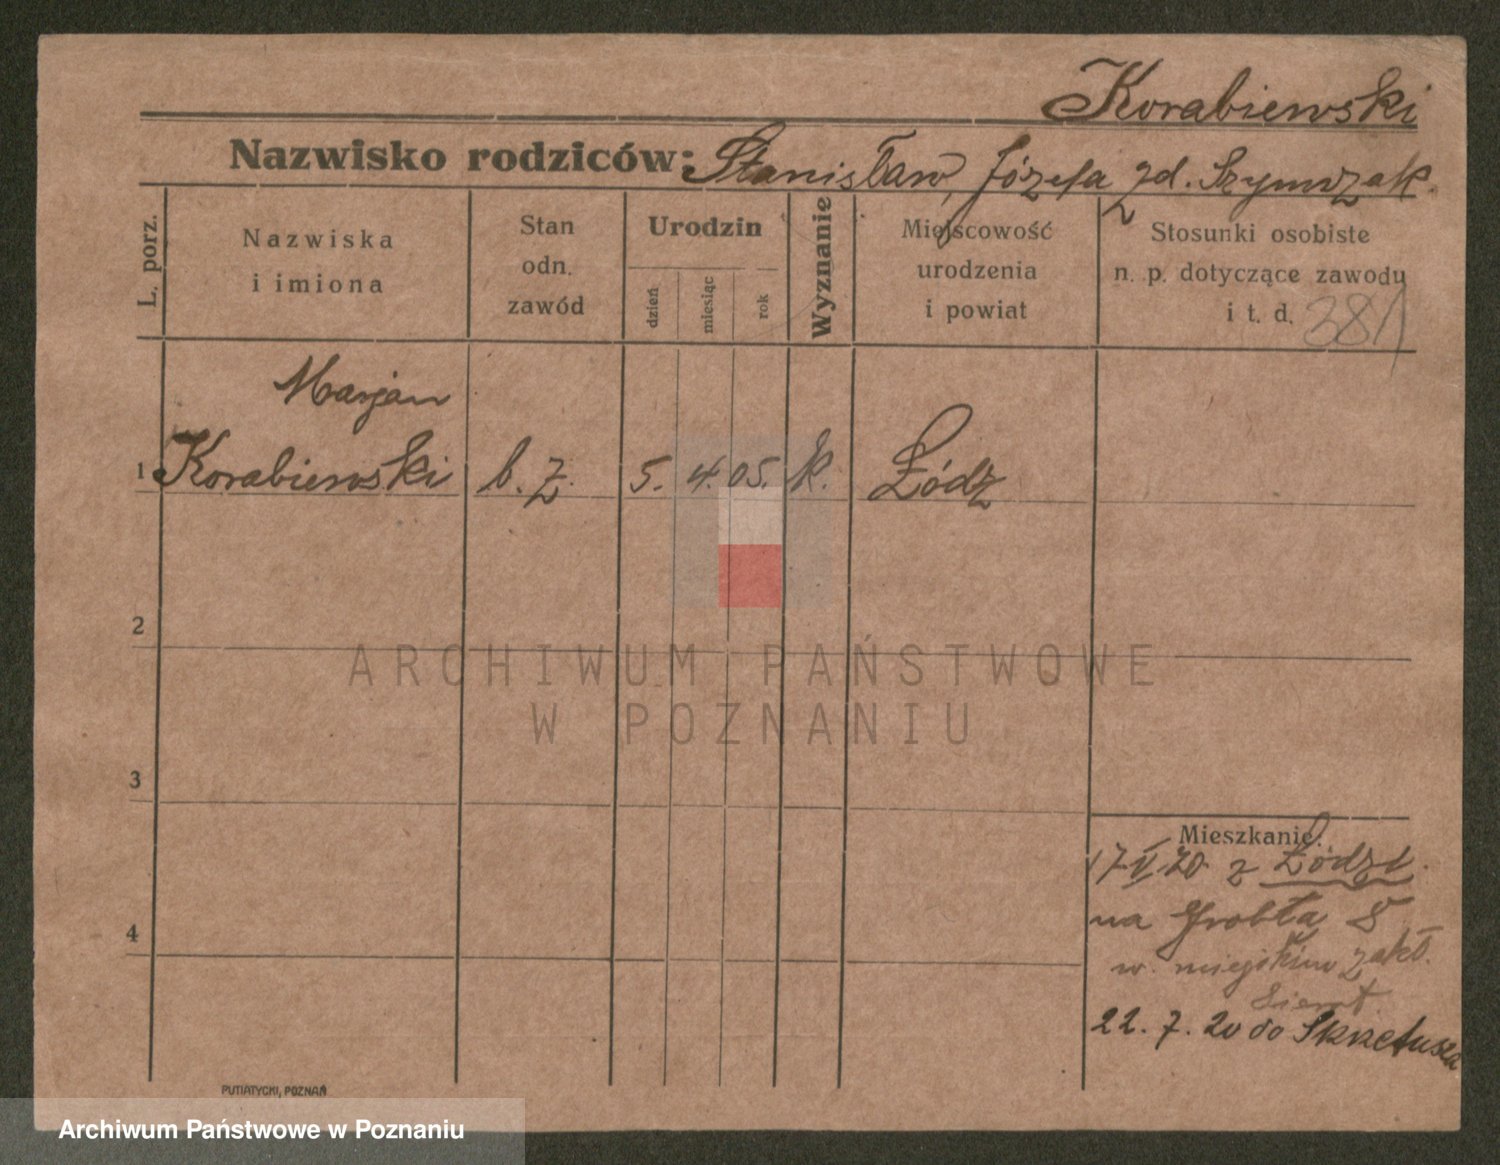 Korabiewski
Nazwisko rodziców: Stanisław, Józefa zd. Szymczak.
L. porz.
Nazwiska
i imiona
Stan
odn.
zawód
Urodzin
dzień
miesiąc
rok
Wyznanie
Miejscowość
urodzenia
i powiat
Stosunki osobiste
n. p. dotyczące zawodu
i t. d. 381
Marjan
1 Korabiewski b. z. 5. 4. 05. k. Łódz
2
ARCHIWUM PAŃSTWOWE
W POZNANIU
3
Mieszkanie:
17 V 20 z Łodzi.
4
na Grobla 8
w. miejskim zakł.
Sierot.
22. 7. 20 do Skrzetusza
PUTIATYCKI, POZNAŃ
Archiwum Państwowe w Poznaniu